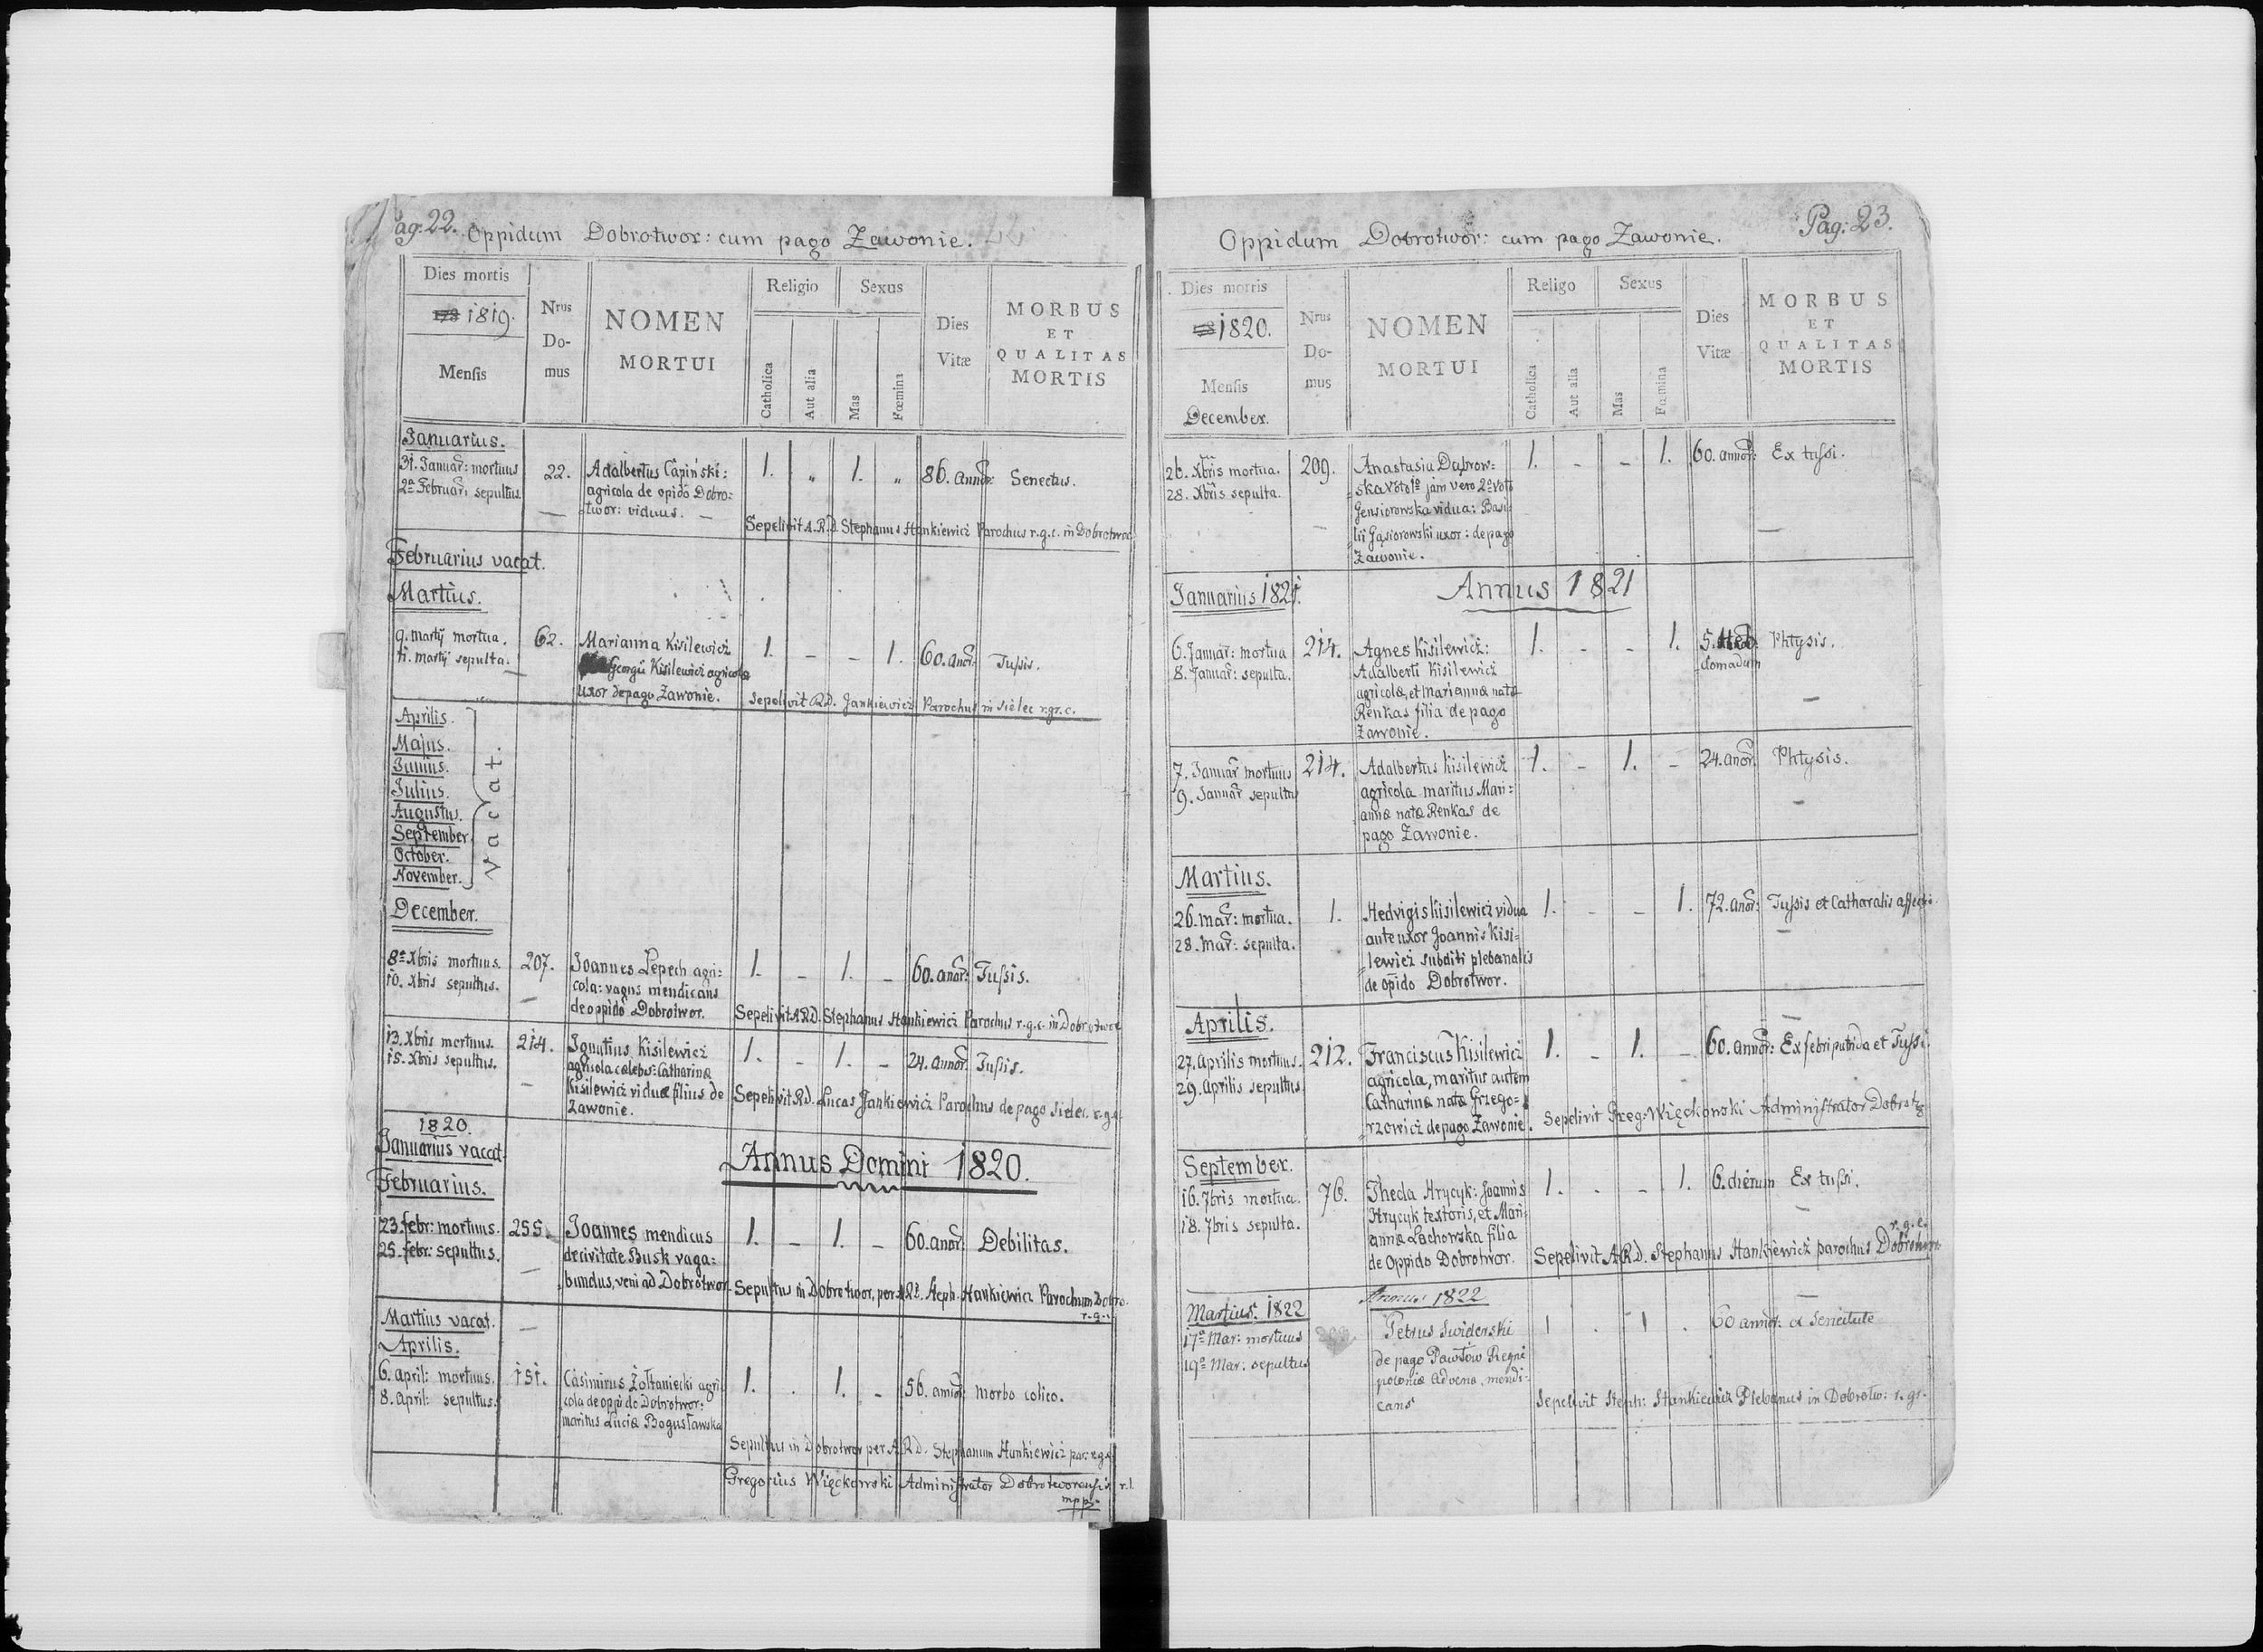 Pag. 22. Oppidum Dobrotwor: cum pago Zawonie.
Dies mortis
1819.
Mensis
Nrus
Do-
mus
NOMEN
MORTUI
Religio
Catholica
Aut alia
Sexus
Mas
Fœmina
Dies
Vitæ
MORBUS
ET
QUALITAS
MORTIS
Januarius.
31. Januar: mortuus
2a Februar: sepultus.
22.
Adalbertus Capinski:
agricola de opido Dobro=
twor: viduus. —
1. „ 1. „ 86. Annor: Senectus.
Sepelivit A.R.D. Stephanus Hankiewicz Parochus r.g.c. in Dobrotwor
Februarius vacat.
Martius.
9. martij mortua.
11. martij sepulta.
62.
Marianna Kisilewicz
Georgii Kisilewicz agricolæ
uxor de pago Zawonie.
1. – – 1. 60. anor: Tussis.
Sepelivit R.D. Jankiewicz Parochus in Sielec r.gr.c.
Aprilis.
Majus.
Junius.
Julius.
Augustus.
September.
October.
November.
vacat.
December.
8a Xbris mortuus.
10. Xbris sepultus.
207.
Joannes Lepech agri=
cola: vagus mendicans
de oppido Dobrotwor.
1. – 1. – 60. anor: Tussis.
Sepelivit A.R.D. Stephanus Hankiewicz Parochus r.g.c. in Dobrotwor
13. Xbris mortuus.
15. Xbris sepultus.
214.
Ignatius Kisilewicz
agricola cælebs: Catharinæ
Kisilewicz viduæ filius de
Zawonie.
1. – 1. – 24. annor: Tussis.
Sepelivit R.D. Lucas Jankiewicz Parochus de pago Sielec. r.g.c.
1820.
Januarius vacat.
Annus Domini 1820.
Februarius.
23. febr: mortuus.
25. febr: sepultus.
255.
Joannes mendicus
de civitate Busk vaga=
bundus, veni ad Dobrotwor.
1. – 1. – 60. anor: Debilitas.
Sepultus in Dobrotwor, per A.R.D. Steph. Hankiewicz Parochum Dobro.
r.g.c.
Martius vacat.
Aprilis.
6. april: mortuus.
8. april: sepultus.
151.
Casimirus Żołtaniecki agri=
cola de oppido Dobrotwor:
maritus Luciæ Bogusławska
1. . 1. – 56. annor: morbo colico.
Sepultus in Dobrotwor per A.R.D. Stephanum Hankiewicz par: r.g.c.
Gregorius Więckowski Administrator Dobrotworensis r.l.
mpp
Oppidum Dobrotwor: cum pago Zawonie. Pag: 23.
Dies mortis
1820.
Mensis
December.
Nrus
Do-
mus
NOMEN
MORTUI
Religo
Catholica
Aut alia
Sexus
Mas
Fœmina
Dies
Vitæ
MORBUS
ET
QUALITAS
MORTIS
26. Xbris mortua.
28. Xbris sepulta.
209.
Anastasia Dąbrow=
ska voto 1o jam vero 2o voto
Gensiorowska vidua: Basi=
lii Gąsiorowski uxor: de pago
Zawonie.
1. – – 1. 60. annor: Ex tussi.
Januarius 1821.
Annus 1821
6. Januar: mortua
8. Januar: sepulta.
214.
Agnes Kisilewicz:
Adalberti Kisilewicz
agricolæ, et Mariannæ natæ
Renkas filia de pago
Zawonie.
1. – – 1. 5. Heb=
domadum
Phtysis.
7. Januar mortuus
9. Januar sepultus
214.
Adalbertus Kisilewicz
agricola maritus Mari=
annæ natæ Renkas de
pago Zawonie.
1. – 1. – 24. anor: Phtysis.
Martius.
26. mar: mortua.
28. mar: sepulta.
1.
Hedvigis Kisilewicz vidua
ante uxor Joannis Kisi=
lewicz subditi plebanalis
de opido Dobrotwor.
1. – – 1. 72. anor: Tussis et Catharalis affectio.
Aprilis.
27. Aprilis mortuus.
29. Aprilis sepultus.
212.
Franciscus Kisilewicz
agricola, maritus autem
Catharinæ natæ Grzego=
rzowicz de pago Zawonie.
1. – 1. – 60. annor: Ex febri putrida et Tussi.
Sepelivit Greg: Więckowski Administrator Dobrot
September.
16. 7bris mortua.
18. 7bris sepulta.
76.
Theda Hrycyk: Joannis
Hrycyk textoris, et Mari=
annæ Lachowska filia
de Oppido Dobrotwor.
1. . – 1. 6. dierum Ex tussi.
Sepelivit A.R.D. Stephanus Hankiewicz parochus Dobrotwor
r.g.c.
Martius. 1822
Annus 1822
17a Mar: mortuus
19a Mar: sepultus
Petrus Swiderski
de pago Pawłow Regni
poloniæ advena, mendi=
cans
1 . 1 . 60 annor: ex Senectute
Sepelivit Steph: Hankiewicz Plebanus in Dobrotw: r. gr.